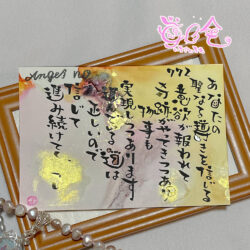 Angel No
777
あなたの
聖なる導きを信じる
意欲が報われて
奇跡がやってきつつあり
何事も
実現しつつあります
道は
正しいので
信じて
進み続けて